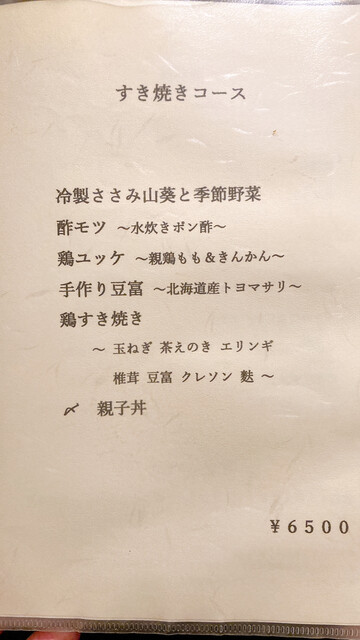 すき焼きコース
冷製ささみ山葵と季節野菜
酢モツ ～水炊きポン酢～
鶏ユッケ ～親鶏もも＆きんかん～
手作り豆富 ～北海道産トヨマサリ～
鶏すき焼き
～ 玉ねぎ 茶えのき エリンギ
椎茸 豆富 クレソン 麩 ～
〆 親子丼
￥6500